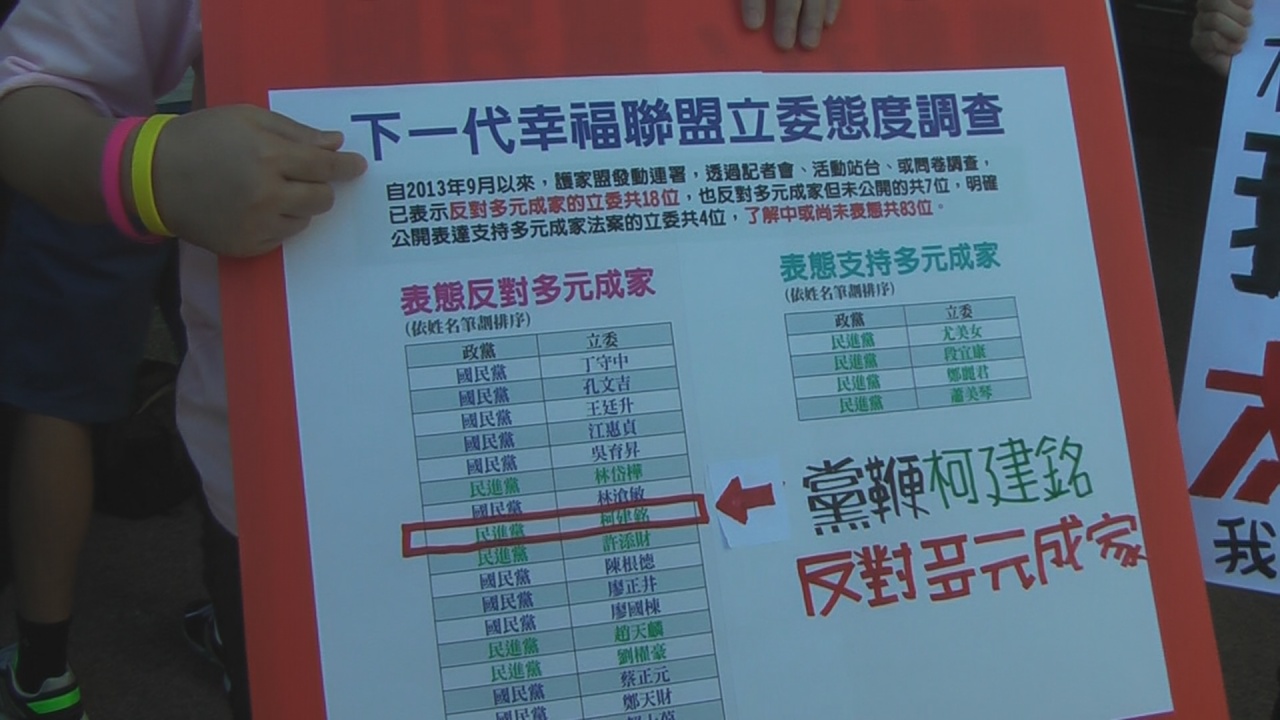 下一代幸福聯盟立委態度調查
自2013年9月以來，護家盟發動連署，透過記者會、活動站台、或問卷調查，
已表示反對多元成家的立委共18位，也反對多元成家但未公開的共7位，明確
公開表達支持多元成家法案的立委共4位，了解中或尚未表態共83位。
表態反對多元成家
(依姓名筆劃排序)
政黨 立委
國民黨 丁守中
國民黨 孔文吉
國民黨 王廷升
國民黨 江惠貞
國民黨 吳育昇
民進黨 林岱樺
國民黨 林滄敏
民進黨 柯建銘
民進黨 許添財
國民黨 陳根德
國民黨 廖正井
國民黨 廖國棟
民進黨 趙天麟
民進黨 劉櫂豪
國民黨 蔡正元
國民黨 鄭天財
表態支持多元成家
(依姓名筆劃排序)
政黨 立委
民進黨 尤美女
民進黨 段宜康
民進黨 鄭麗君
民進黨 蕭美琴
黨鞭柯建銘
反對多元成家
我